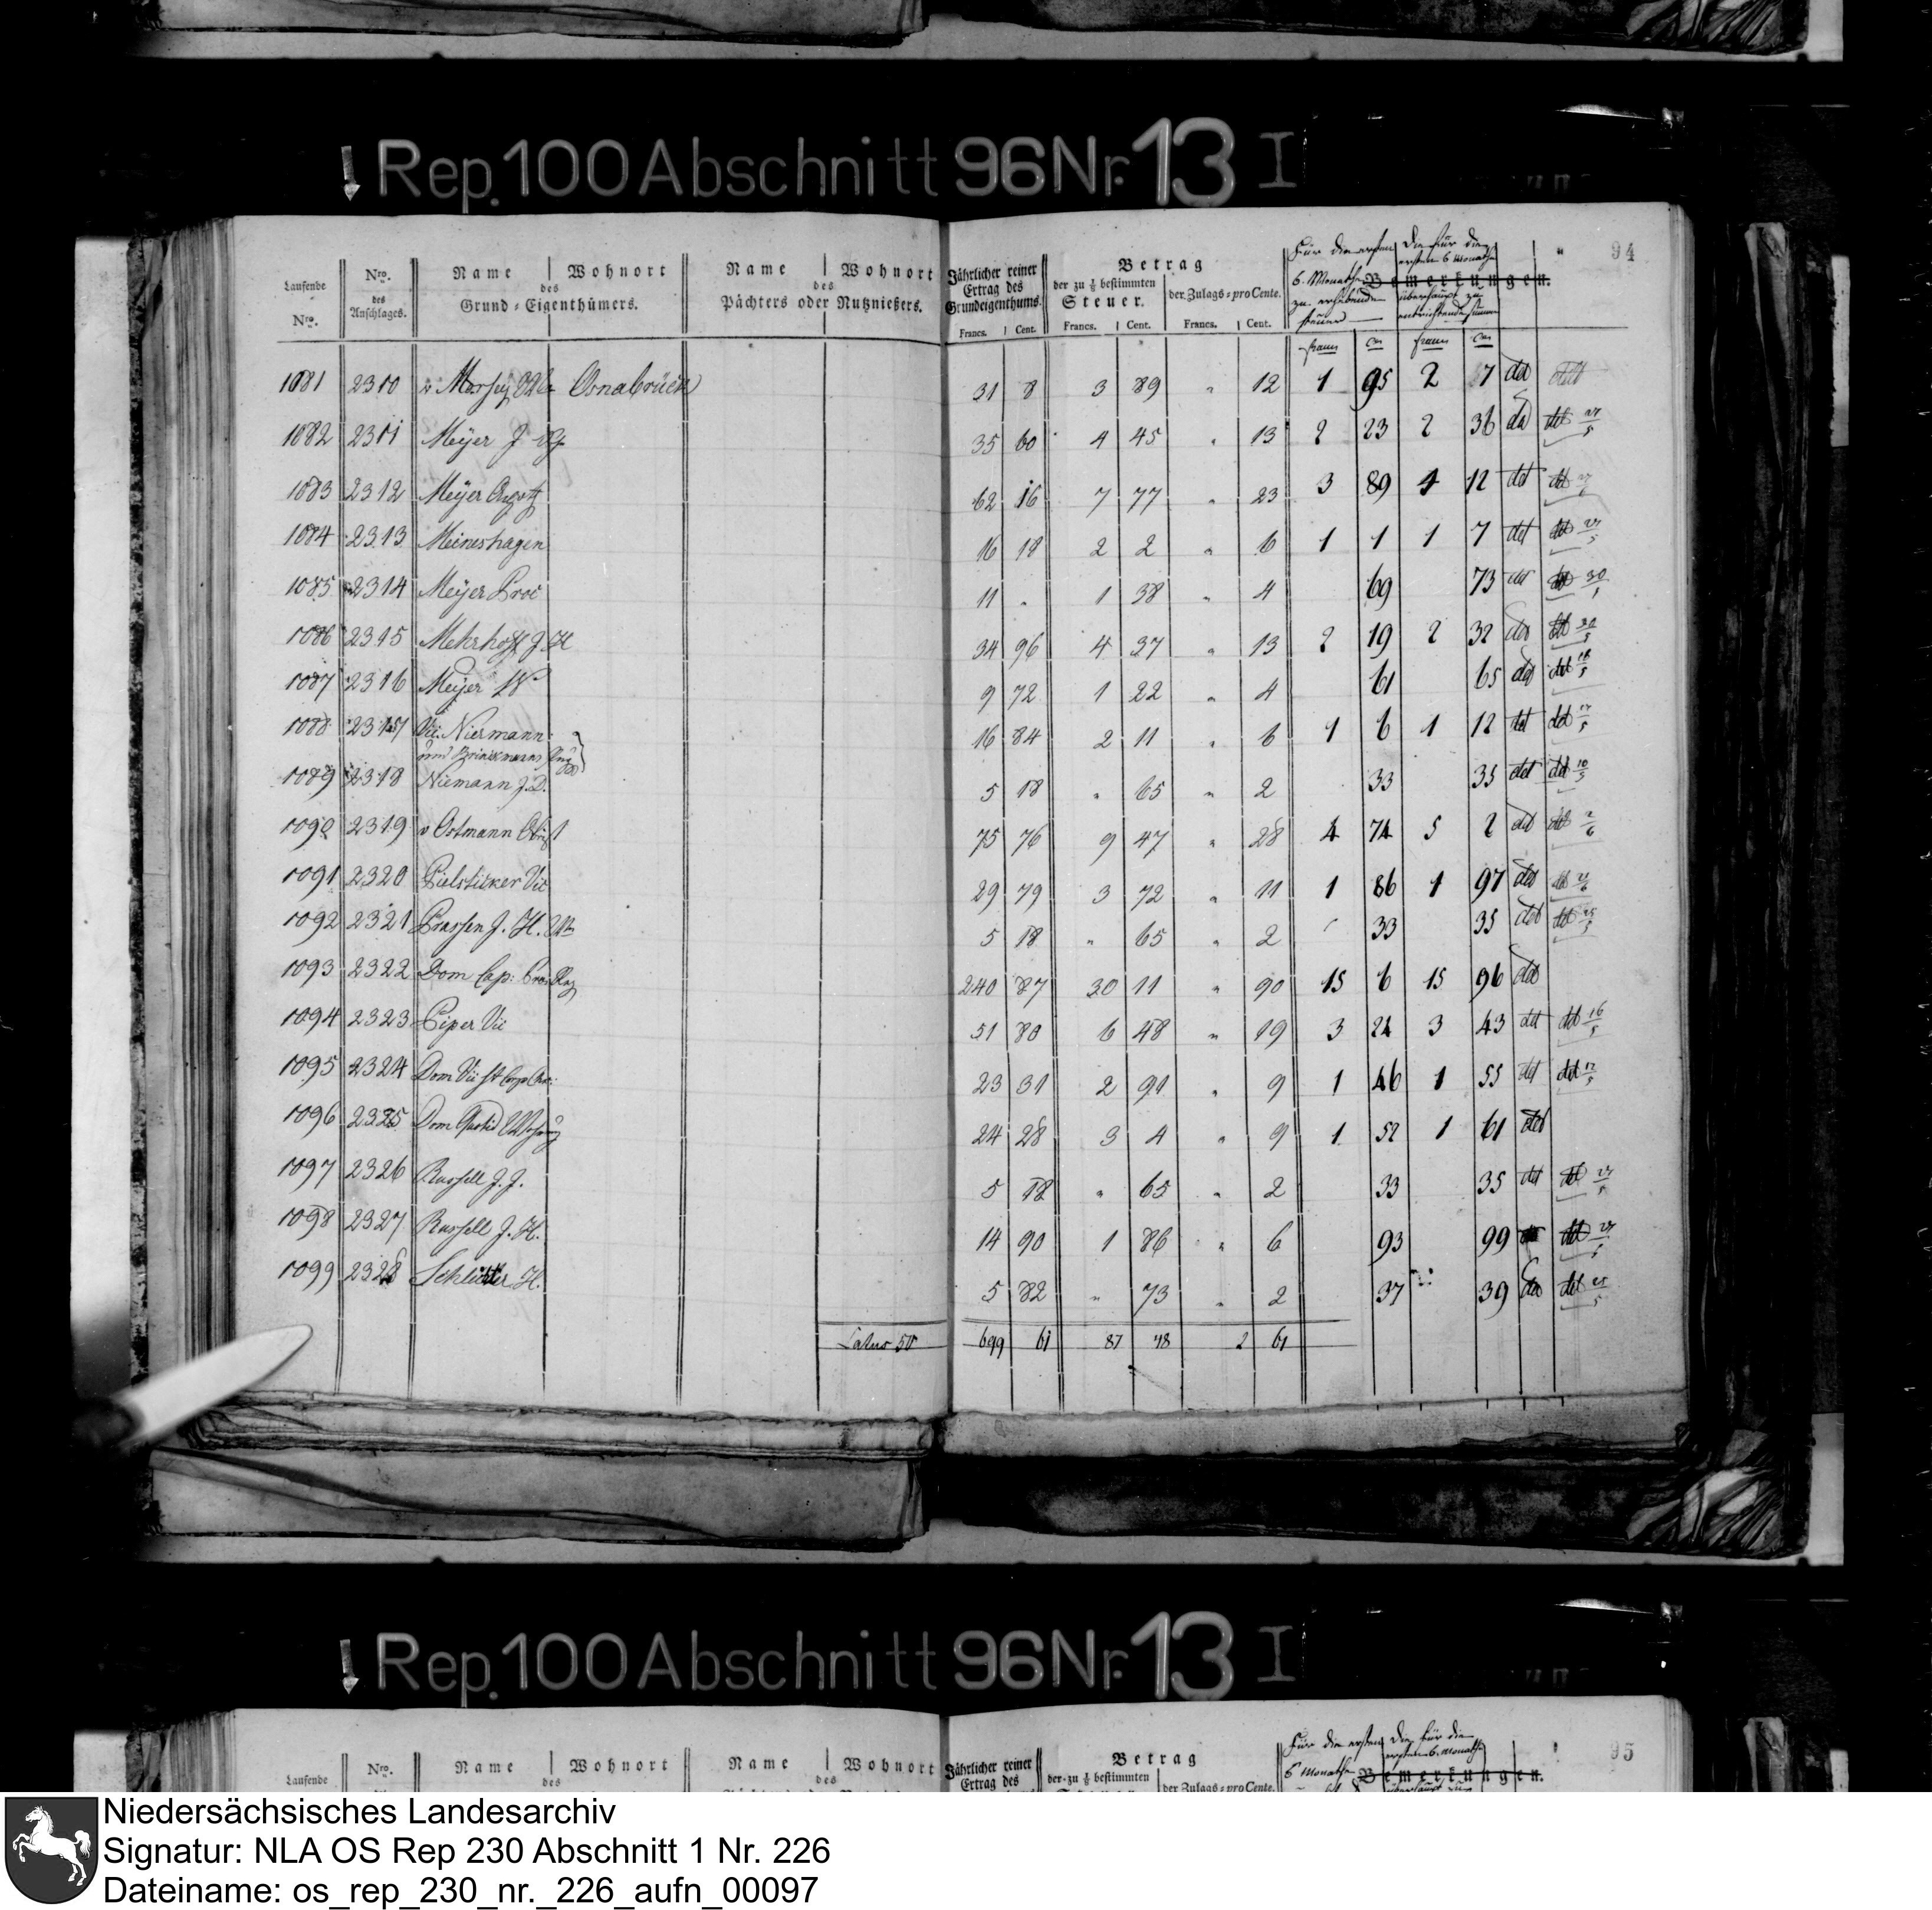 Rep. 100 Abschnitt 96 Nr. 13 I
94
Laufende Nro.
Nro. des Anschlages.
Name | Wohnort des Grund-Eigenthümers.
Name | Wohnort des Pächters oder Nutznießers.
Jährlicher reiner Ertrag des Grundeigenthums. Francs. | Cent.
Betrag
der zu 1/8 bestimmten Steuer. Francs. | Cent.
der Zulags-pro Cente. Francs. | Cent.
Für die ersten 6 Monathe zu erhebende Steuer
Die für die ersten 6 Monathe überhaupt zu entrichtende Summe
Bemerkungen.
1081 2310 v Osnabrück 31 8 3 89 " 12 1 95 2 7 det
1082 2311 Meÿer J 35 60 4 45 " 13 2 23 2 36 det det 27/5
1083 2312 Meÿer 62 16 7 77 " 23 3 89 4 12 det det
1084 2313 Meineshagen 16 18 2 2 " 6 1 1 1 7 det det 27/5
1085 2314 Meÿer Proc 11 " 1 38 " 4 69 73 det det 30
1086 2315 Mehrhoff J H 34 96 4 37 " 13 2 19 2 32 det det 30/5
1087 2316 Meÿer W 9 72 1 22 " 4 61 65 det det 18/5
1088 2317 Vic. Niermann 16 84 2 11 " 6 1 6 1 12 det det 17/5
und Brinckmanns
1089 2318 Niemann J. D. 5 18 " 65 " 2 33 35 det det 10/5
1090 2319 v Ostmann Obrist 75 76 9 47 " 28 4 74 5 2 det det 2/6
1091 2320 Pielsticker Vic 29 79 3 72 " 11 1 86 1 97 det det
1092 2321 Prassen J. H. 5 18 " 65 " 2 33 35 det det 25/5
1093 2322 Dom Cap: 240 87 30 11 " 90 15 6 15 96 det
1094 2323 Piper Vic 51 80 6 48 " 19 3 24 3 43 det det 16/5
1095 2324 Dom Vic St Corp Chr: 23 31 2 91 " 9 1 46 1 55 det det 12/5
1096 2325 Dom 24 28 3 4 " 9 1 52 1 61 det
1097 2326 Russell J. J. 5 18 " 65 " 2 33 35 det det 27/5
1098 2327 Russell J. H. 14 90 1 86 " 6 93 99 det 27/5
1099 2328 Schlichter H. 5 82 " 73 " 2 37 39 det det 25/5
Latus 50 699 61 87 48 2 61
Rep. 100 Abschnitt 96 Nr. 13 I
95
Laufende
Nro.
Name | Wohnort des
Name | Wohnort des
Jährlicher reiner Ertrag des
Betrag
der zu 1/8 bestimmten
der Zulags-pro Cente.
Für die ersten 6 Monathe
Die für die ersten 6 Monathe
Bemerkungen.
Niedersächsisches Landesarchiv
Signatur: NLA OS Rep 230 Abschnitt 1 Nr. 226
Dateiname: os_rep_230_nr._226_aufn_00097